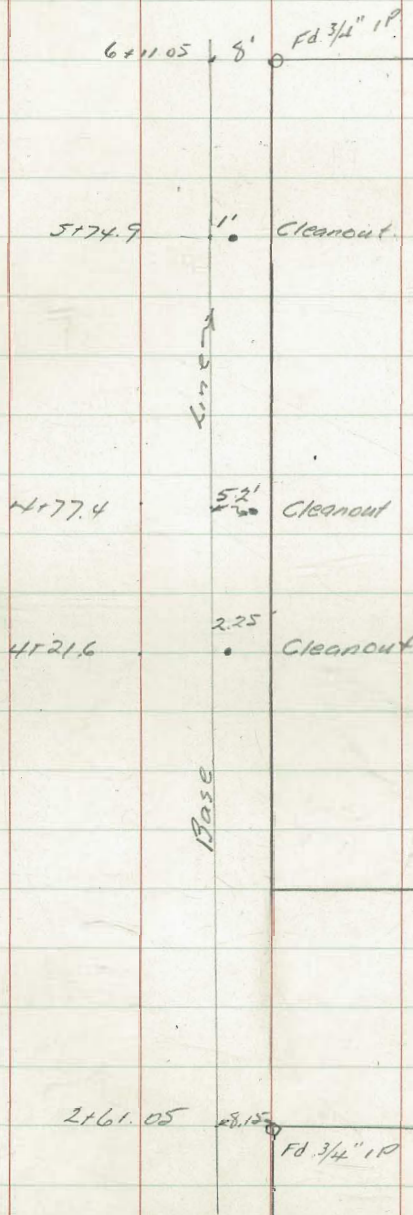 6+11.05 8' Fd. 3/4" IP
5+74.9 1' Cleanout.
Line
4+77.4 5.2' Cleanout
4+21.6 2.25' Cleanout
Base
2+61.05 8.15 Fd. 3/4" IP